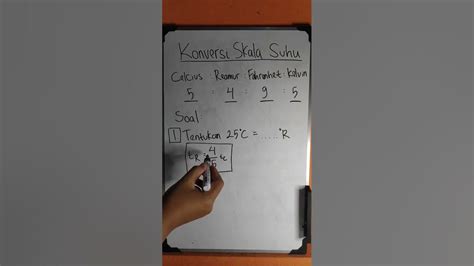 Konversi Skala Suhu
Celcius : Reamur : Fahrenheit : Kelvin
5 : 4 : 9 : 5
Soal
1 Tentukan 25°C = ..... °R
tR = 4/5 tc